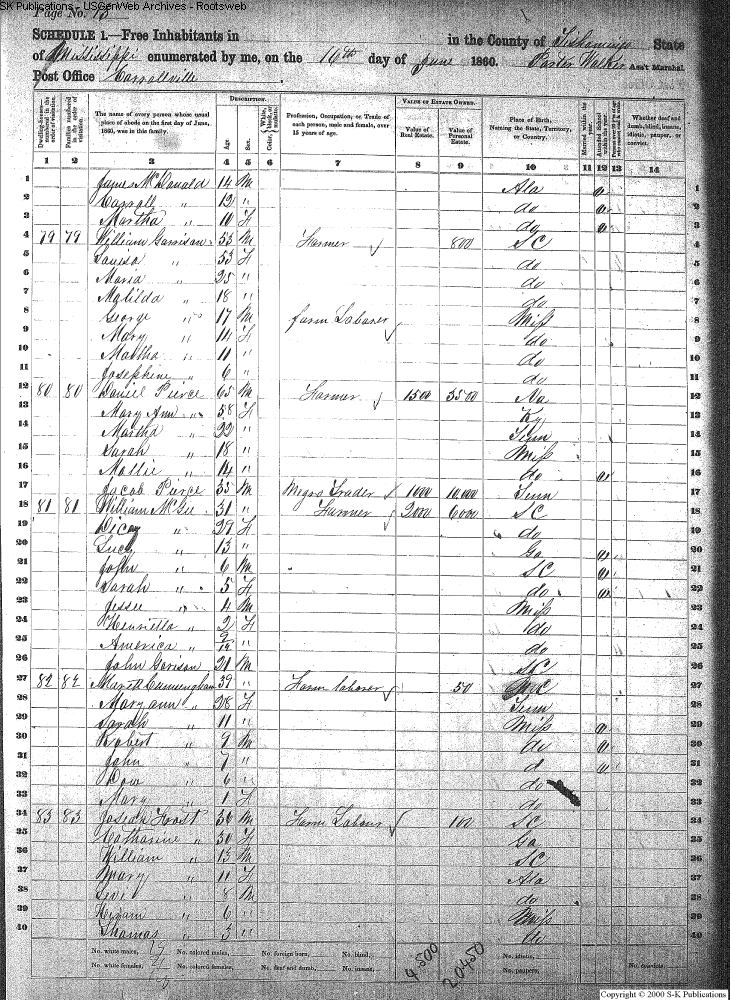 SK Publications - USGenWeb Archives - Rootsweb
Page No. 75
SCHEDULE 1.—Free Inhabitants in in the County of Tishomingo State
of Mississippi enumerated by me, on the 16th day of June 1860. Ass't Marshal
Post Office Carrollville
DESCRIPTION. VALUE OF ESTATE OWNED.
Dwelling-houses—numbered in the order of visitation.
Families numbered in the order of visitation.
The name of every person whose usual place of abode on the first day of June, 1860, was in this family.
Age. Sex. Color, White, black, or mulatto.
Profession, Occupation, or Trade of each person, male and female, over 15 years of age.
Value of Real Estate. Value of Personal Estate.
Place of Birth, Naming the State, Territory, or Country.
Married within the year. Attended School within the year.
Whether deaf and dumb, blind, insane, idiotic, pauper, or convict.
1 2 3 4 5 6 7 8 9 10 11 12 13 14
1 James McDonald 14 M Ala 1
2 Carroll " 12 " do 2
3 Martha " 10 F do 3
4 79 79 William Garrison 53 M Farmer 800 SC 4
5 Louisa " 53 F do 5
6 Maria " 25 " do 6
7 Matilda " 18 " do 7
8 George " 17 M farm Laborer Miss 8
9 Mary " 14 F do 9
10 Martha " 11 " do 10
11 Josephine " 6 " do 11
12 80 80 Daniel Pierce 65 M Farmer 1500 3500 12
13 Mary Ann " 58 F Ky 13
14 Martha " 22 " Tenn 14
15 Sarah " 18 " Miss 15
16 Mollie " 14 " do 16
17 Jacob Pierce 35 M Negro Trader 1000 10,000 Tenn 17
18 81 81 William McGee 31 " Farmer 2000 6000 SC 18
19 Dicey " 29 F do 19
20 Lucy " 13 " Ga 20
21 John " 6 M SC 21
22 Sarah " 5 F do 22
23 Jessee " 4 M Miss 23
24 Henrietta " 2 F do 24
25 America " 2/12 " do 25
26 John Garison 21 M SC 26
27 82 82 Cunningham 39 " Farm laborer 50 27
28 Mary ann " 28 F Tenn 28
29 Sarah " 11 " Miss 29
30 Robert " 9 M do 30
31 John " 7 " d 31
32 " 6 " do 32
33 Mary " 1 F do 33
34 83 83 Joseph Frost 36 M Farm Labour 100 SC 34
35 Catharine " 30 F Ga 35
36 William " 13 M SC 36
37 Mary " 11 F Ala 37
38 Levi " 8 M do 38
39 Hiram " 6 " Miss 39
40 Thomas " 3 " do 40
No. white males, 19 No. colored males, No. foreign born, No. blind, 4500 20450 No. idiotic,
No. white females, 21 No. colored females, No. deaf and dumb, No. insane, No. paupers, No. convicts,
Copyright © 2000 S-K Publications